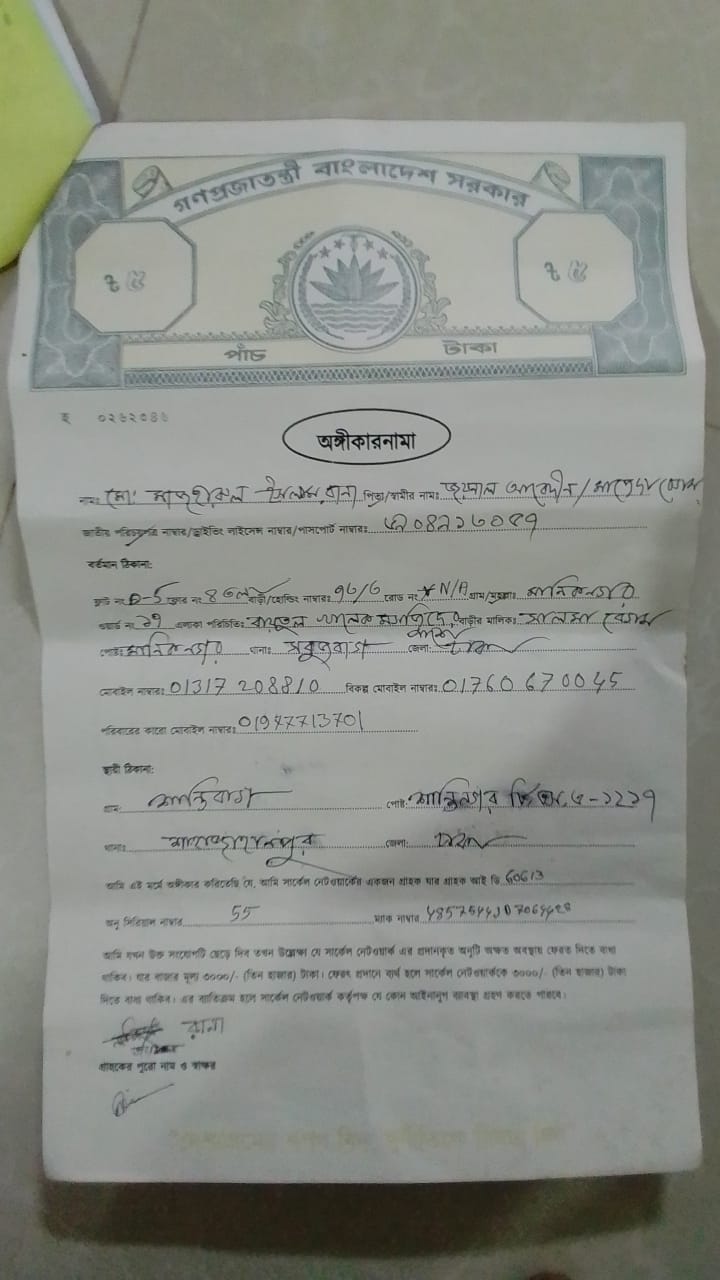 গণপ্রজাতন্ত্রী বাংলাদেশ সরকার
৳ ৫ ৳ ৫
পাঁচ টাকা
হ ০২৬২০৪৬
অঙ্গীকারনামা
নাম: মো: ইসলাম রানা পিতা/স্বামীর নাম: জয়নাল আবেদীন /
জাতীয় পরিচয়পত্র নাম্বার/ড্রাইভিং লাইসেন্স নাম্বার/পাসপোর্ট নাম্বার:
বর্তমান ঠিকানা:
ফ্ল্যাট নং D-5 ফ্লোর নং 4 তলা বাড়ী/হোল্ডিং নাম্বার: ৭৬/৬ রোড নং N/A গ্রাম/মহল্লা: মানিকনগর
ওয়ার্ড নং এলাকা পরিচিতি: বায়তুল মসজিদের বাড়ীর মালিক: সালমা বেগম
পোষ্ট: মানিকনগর থানা: সবুজবাগ জেলা: ঢাকা
মোবাইল নাম্বার: 01317 208810 বিকল্প মোবাইল নাম্বার: 01760 670045
পরিবারের কারো মোবাইল নাম্বার: 01947713701
স্থায়ী ঠিকানা:
গ্রাম: শান্তিবাগ পোষ্ট: শান্তিনগর - ১২১৭
থানা: শাহজাহানপুর জেলা: ঢাকা
আমি এই মর্মে অঙ্গীকার করিতেছি যে, আমি সার্কেল নেটওয়ার্কের একজন গ্রাহক যার গ্রাহক আই ডি 60613
অনু সিরিয়াল নাম্বার 55 ম্যাক নাম্বার
আমি যখন উক্ত সংযোগটি ছেড়ে দিব তখন উল্লেখ্য যে সার্কেল নেটওয়ার্ক এর প্রদানকৃত অনুটি অক্ষত অবস্থায় ফেরত দিতে বাধ্য
থাকিব। যার বাজার মূল্য ৩০০০/- (তিন হাজার) টাকা। ফেরৎ প্রদানে ব্যর্থ হলে সার্কেল নেটওয়ার্ককে ৩০০০/- (তিন হাজার) টাকা
দিতে বাধ্য থাকিব। এর ব্যতিক্রম হলে সার্কেল নেটওয়ার্ক কর্তৃপক্ষ যে কোন আইনানুগ ব্যবস্থা গ্রহণ করতে পারবে।
রানা
গ্রাহকের পুরো নাম ও স্বাক্ষর